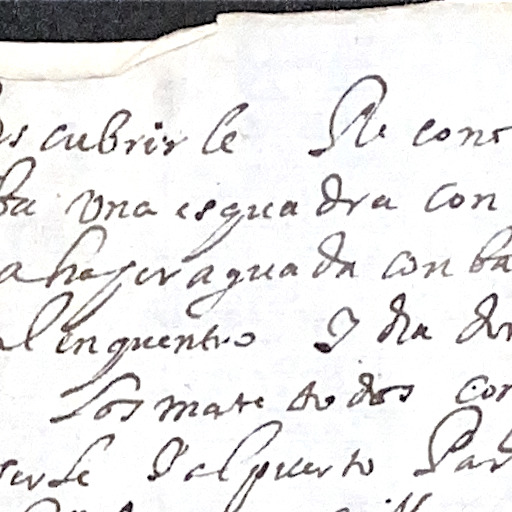 scubrirle Re cono
ba una esquadra con
a haser aguada con ba
al enquentro I dia don
Los mate todos con
serle I al puerto Par